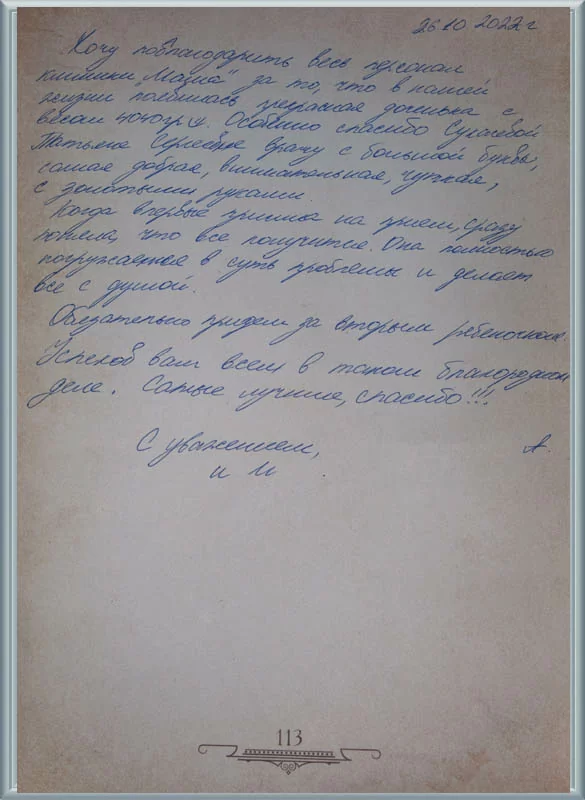 26.10.2022г
Хочу поблагодарить весь персонал
клиники "Мама" за то, что в нашей
жизни появилась прекрасная доченька с
весом 4040гр. Особенно спасибо Сулаевой
Татьяне Сергеевне врачу с большой буквы,
самая добрая, внимательная, чуткая,
с золотыми руками.
Когда впервые пришла на прием, сразу
поняла, что все получится. Она полностью
погружается в суть проблемы и делает
все с душой.
Обязательно придем за вторым ребеночком.
Успехов вам всем в таком благородном
деле. Самые лучшие, спасибо!!!
С уважением, А.
и И
113